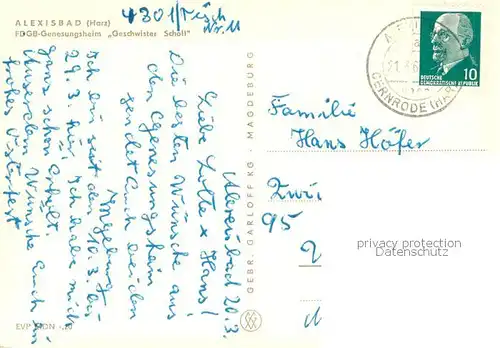 ALEXISBAD (Harz)
FDGB-Genesungsheim „Geschwister Scholl"
4301/Tisch
Nr. 11
Alexisbad 20.3.
Liebe Lotte & Hans!
Die besten Wünsche aus
dem Genesungsheim
sendet Euch beiden
Ingeburg
Ich bin seit dem 10.3. bis
29.3. hier, habe mich
ganz schön erholt.
Ausserdem wünsche Euch ein
frohes Osterfest
GEBR. GARLOFF KG · MAGDEBURG
EVP MDN
GERNRODE (HARZ)
10
DEUTSCHE
DEMOKRATISCHE REPUBLIK
Familie
Hans Höfer
Zwi
95
privacy protection
Datenschutz